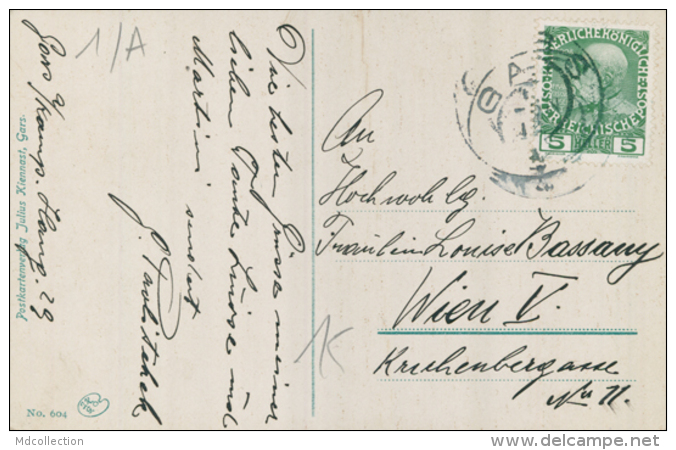 1/A
Gars a/Kamp. Haup. 29
Die besten Grüsse meiner
lieben Tante Luise und
Martin sendet
Postkartenverlag Julius Kiennast, Gars.
No. 604
GARS
KAISERLICHE KÖNIGLICHE
ÖSTERREICHISCHE
5 HELLER 5
An
Hochwohlg.
Fräulein Louise Bassany
Wien V.
Kriehubergasse
No 11.
1K
Mdcollection
www.delcampe.net